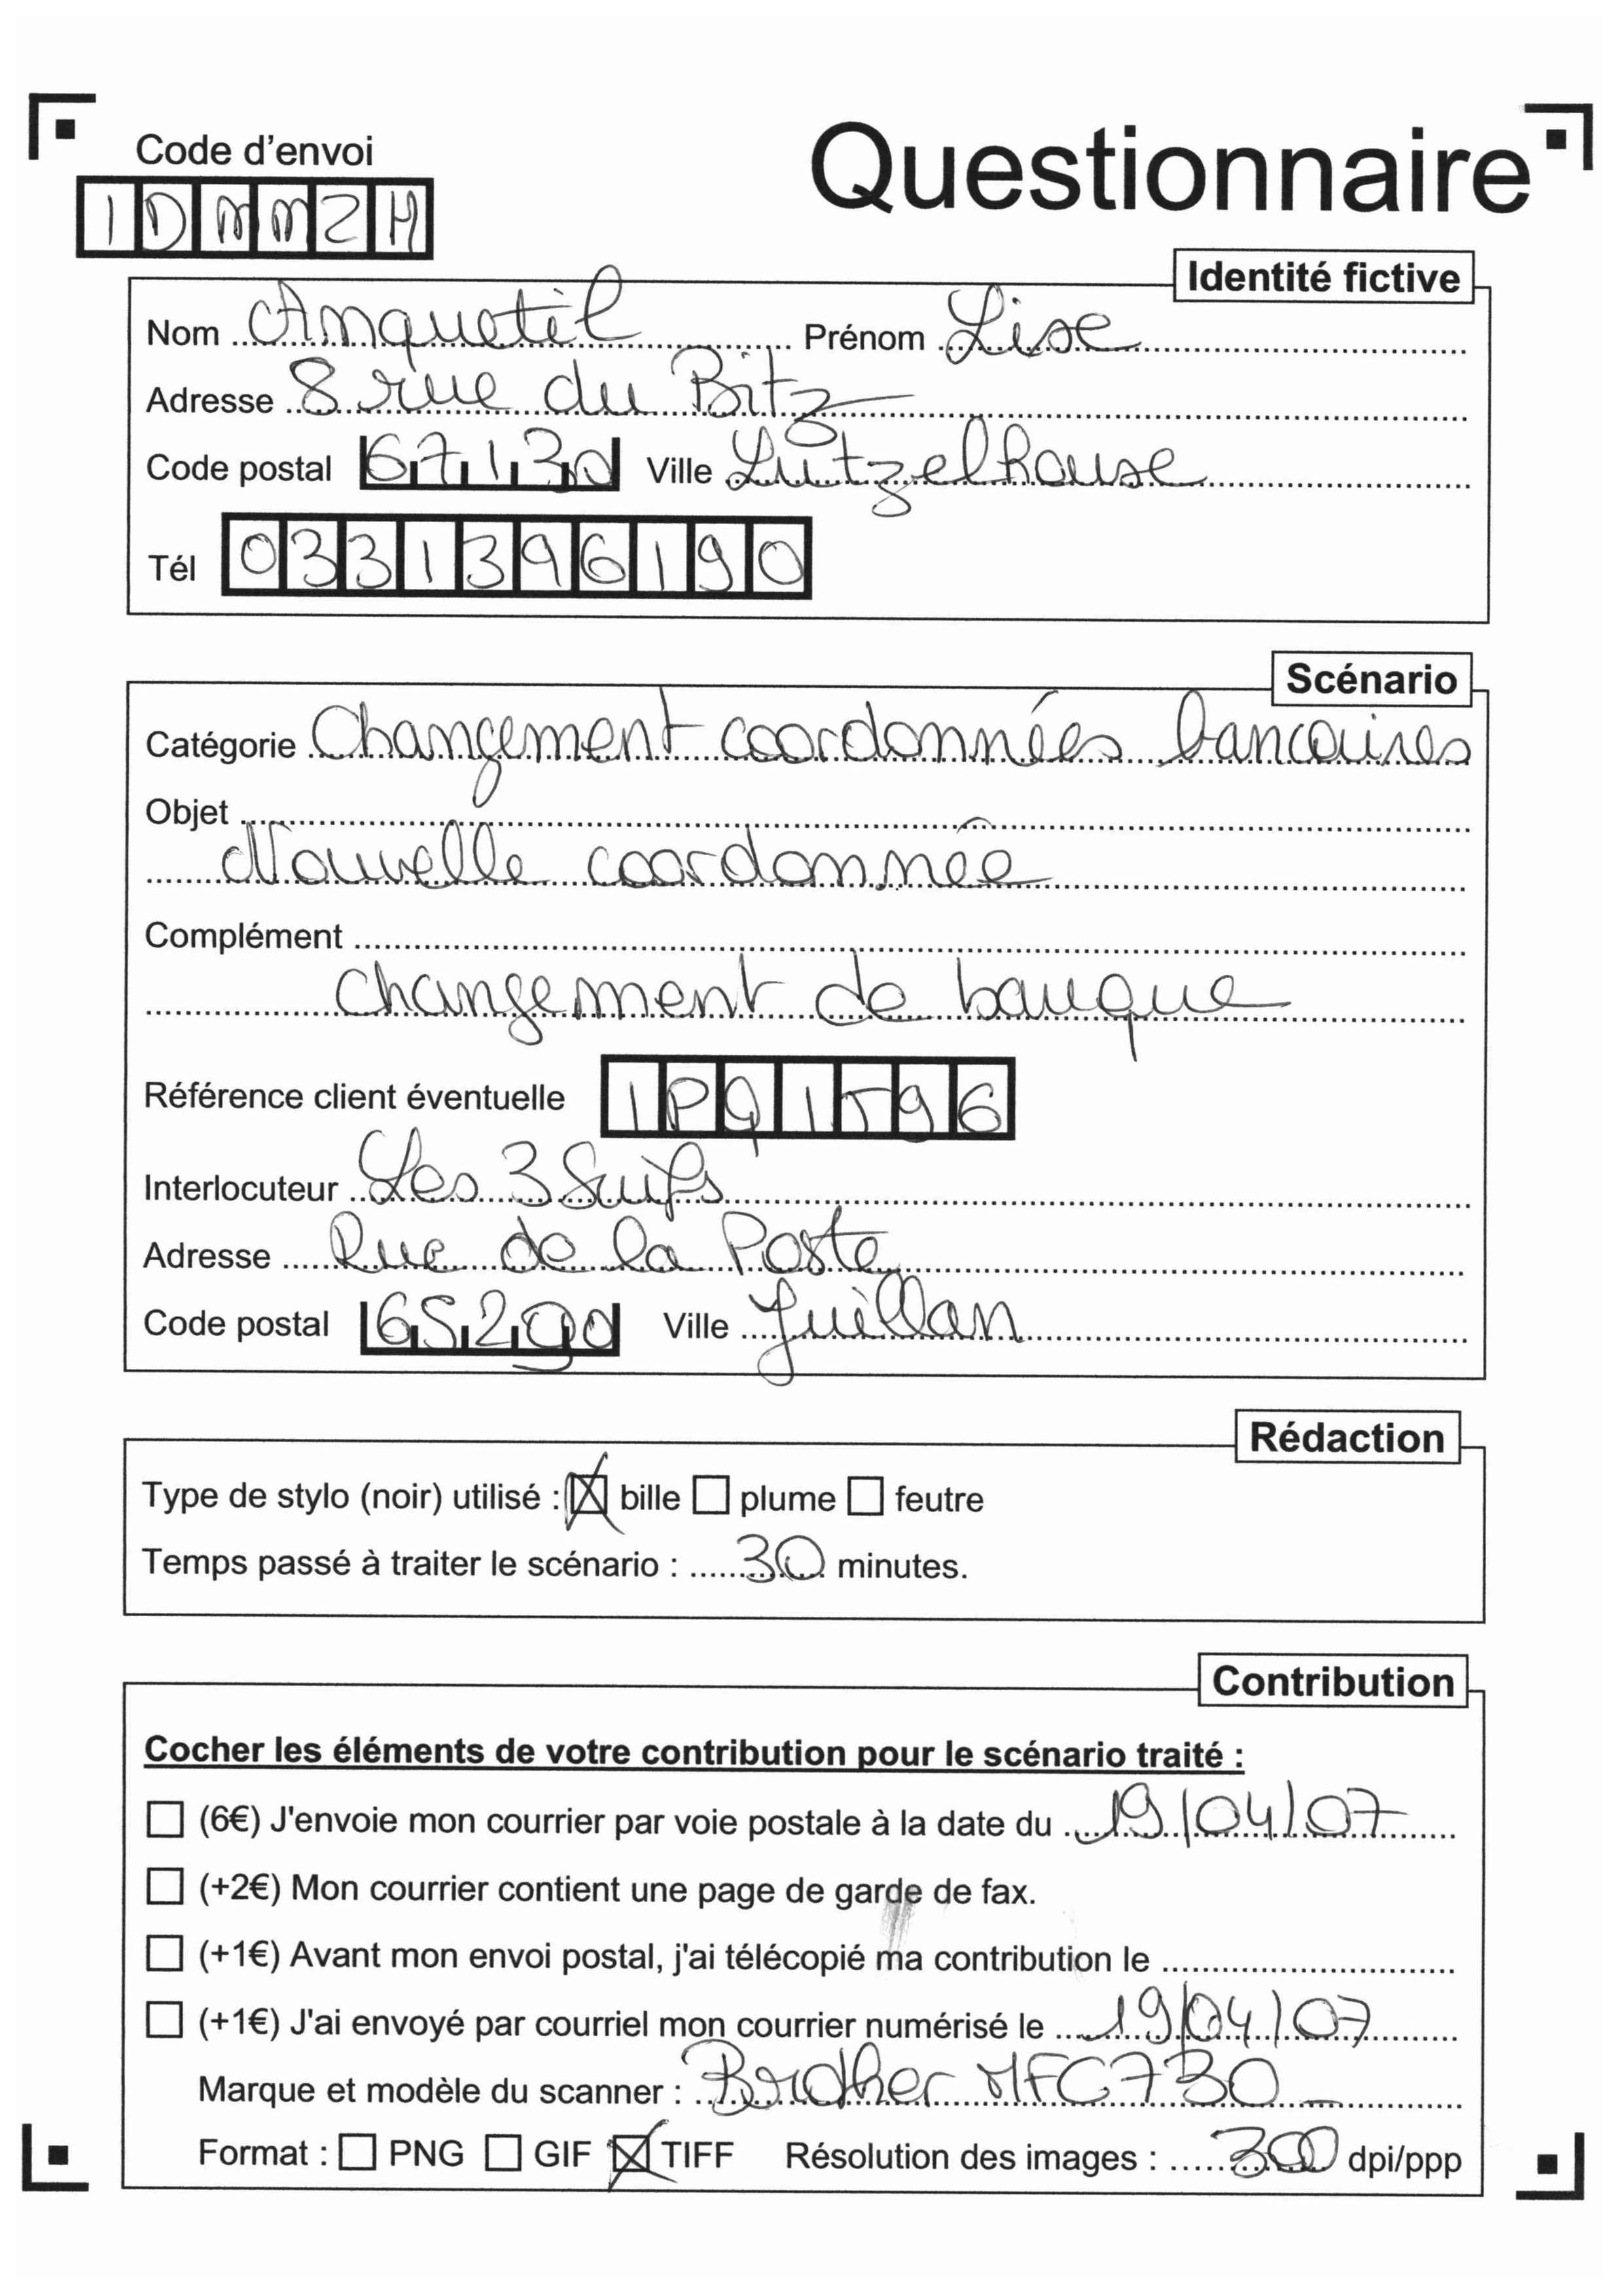 Code d'envoi
Questionnaire
1DMMZH
Identité fictive
Nom Anquetil Prénom Lise
Adresse 8 rue du Bitz
Code postal 67130 Ville Lutzelhouse
Tél 0331396190
Scénario
Catégorie Changement coordonnées bancaires
Objet
Nouvelle coordonnée
Complément
changement de banque
Référence client éventuelle IPQ1596
Interlocuteur Les 3 Suifs
Adresse Rue de la Poste
Code postal 65290 Ville Juillan
Rédaction
Type de stylo (noir) utilisé : bille plume feutre
Temps passé à traiter le scénario : 30 minutes.
Contribution
Cocher les éléments de votre contribution pour le scénario traité :
(6€) J'envoie mon courrier par voie postale à la date du 19/04/07
(+2€) Mon courrier contient une page de garde de fax.
(+1€) Avant mon envoi postal, j'ai télécopié ma contribution le
(+1€) J'ai envoyé par courriel mon courrier numérisé le 19/04/07
Marque et modèle du scanner : Brother MFC730
Format : PNG GIF TIFF Résolution des images : 300 dpi/ppp